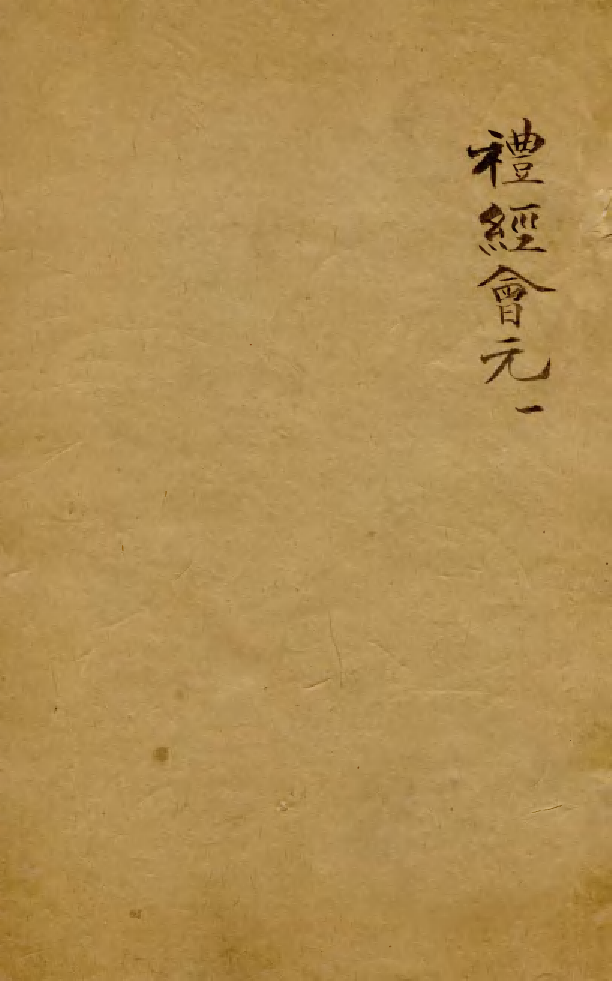 禮經會元一